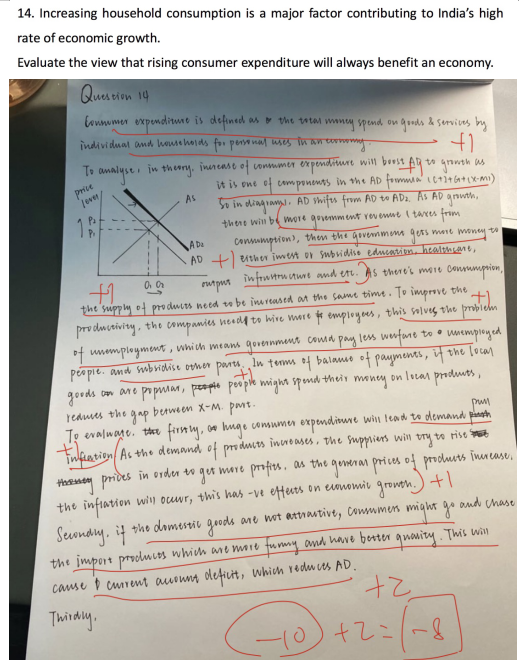 14. Increasing household consumption is a major factor contributing to India's high
rate of economic growth.
Evaluate the view that rising consumer expenditure will always benefit an economy.
Question 14
Consumer expenditure is defined as the total money spend on goods & services by
individual and households for personal uses in an economy. +1
To analyse, in theory, increase of consumer expenditure will boost AD to growth as
it is one of components in the AD formula (C+I+G+(X-M))
price
level
AS
P2
P1
AD2
AD
O1 O2
output
So in diagram1. AD shifts from AD to AD2. As AD growth,
there will be more government revenue (taxes from
consumption), then the government gets more money to
+1 either invest or subsidise education, healthcare,
infrastructure and etc. As there's more consumption,
+1
the supply of products need to be increased at the same time. To improve the +1
productivity, the companies needs to hire more employees, this solves the problem
of unemployment, which means government could pay less welfare to unemployed
people. and subsidise other parts. In terms of balance of payments, if the local
+1
goods are popular, people might spend their money on local products,
reduces the gap between X-M. part.
To evaluate. firstly, huge consumer expenditure will lead to demand pull
+1 inflation (As the demand of products increases, the suppliers will try to rise
prices in order to get more profits. as the general prices of products increase,
the inflation will occur, this has -ve effects on economic growth.) +1
Secondly, if the domestic goods are not attractive, consumers might go and chase
the import products which are more funny and have better quality. This will
cause current account deficit, which reduces AD.
+2
Thirdly,
-10 +2 = -8